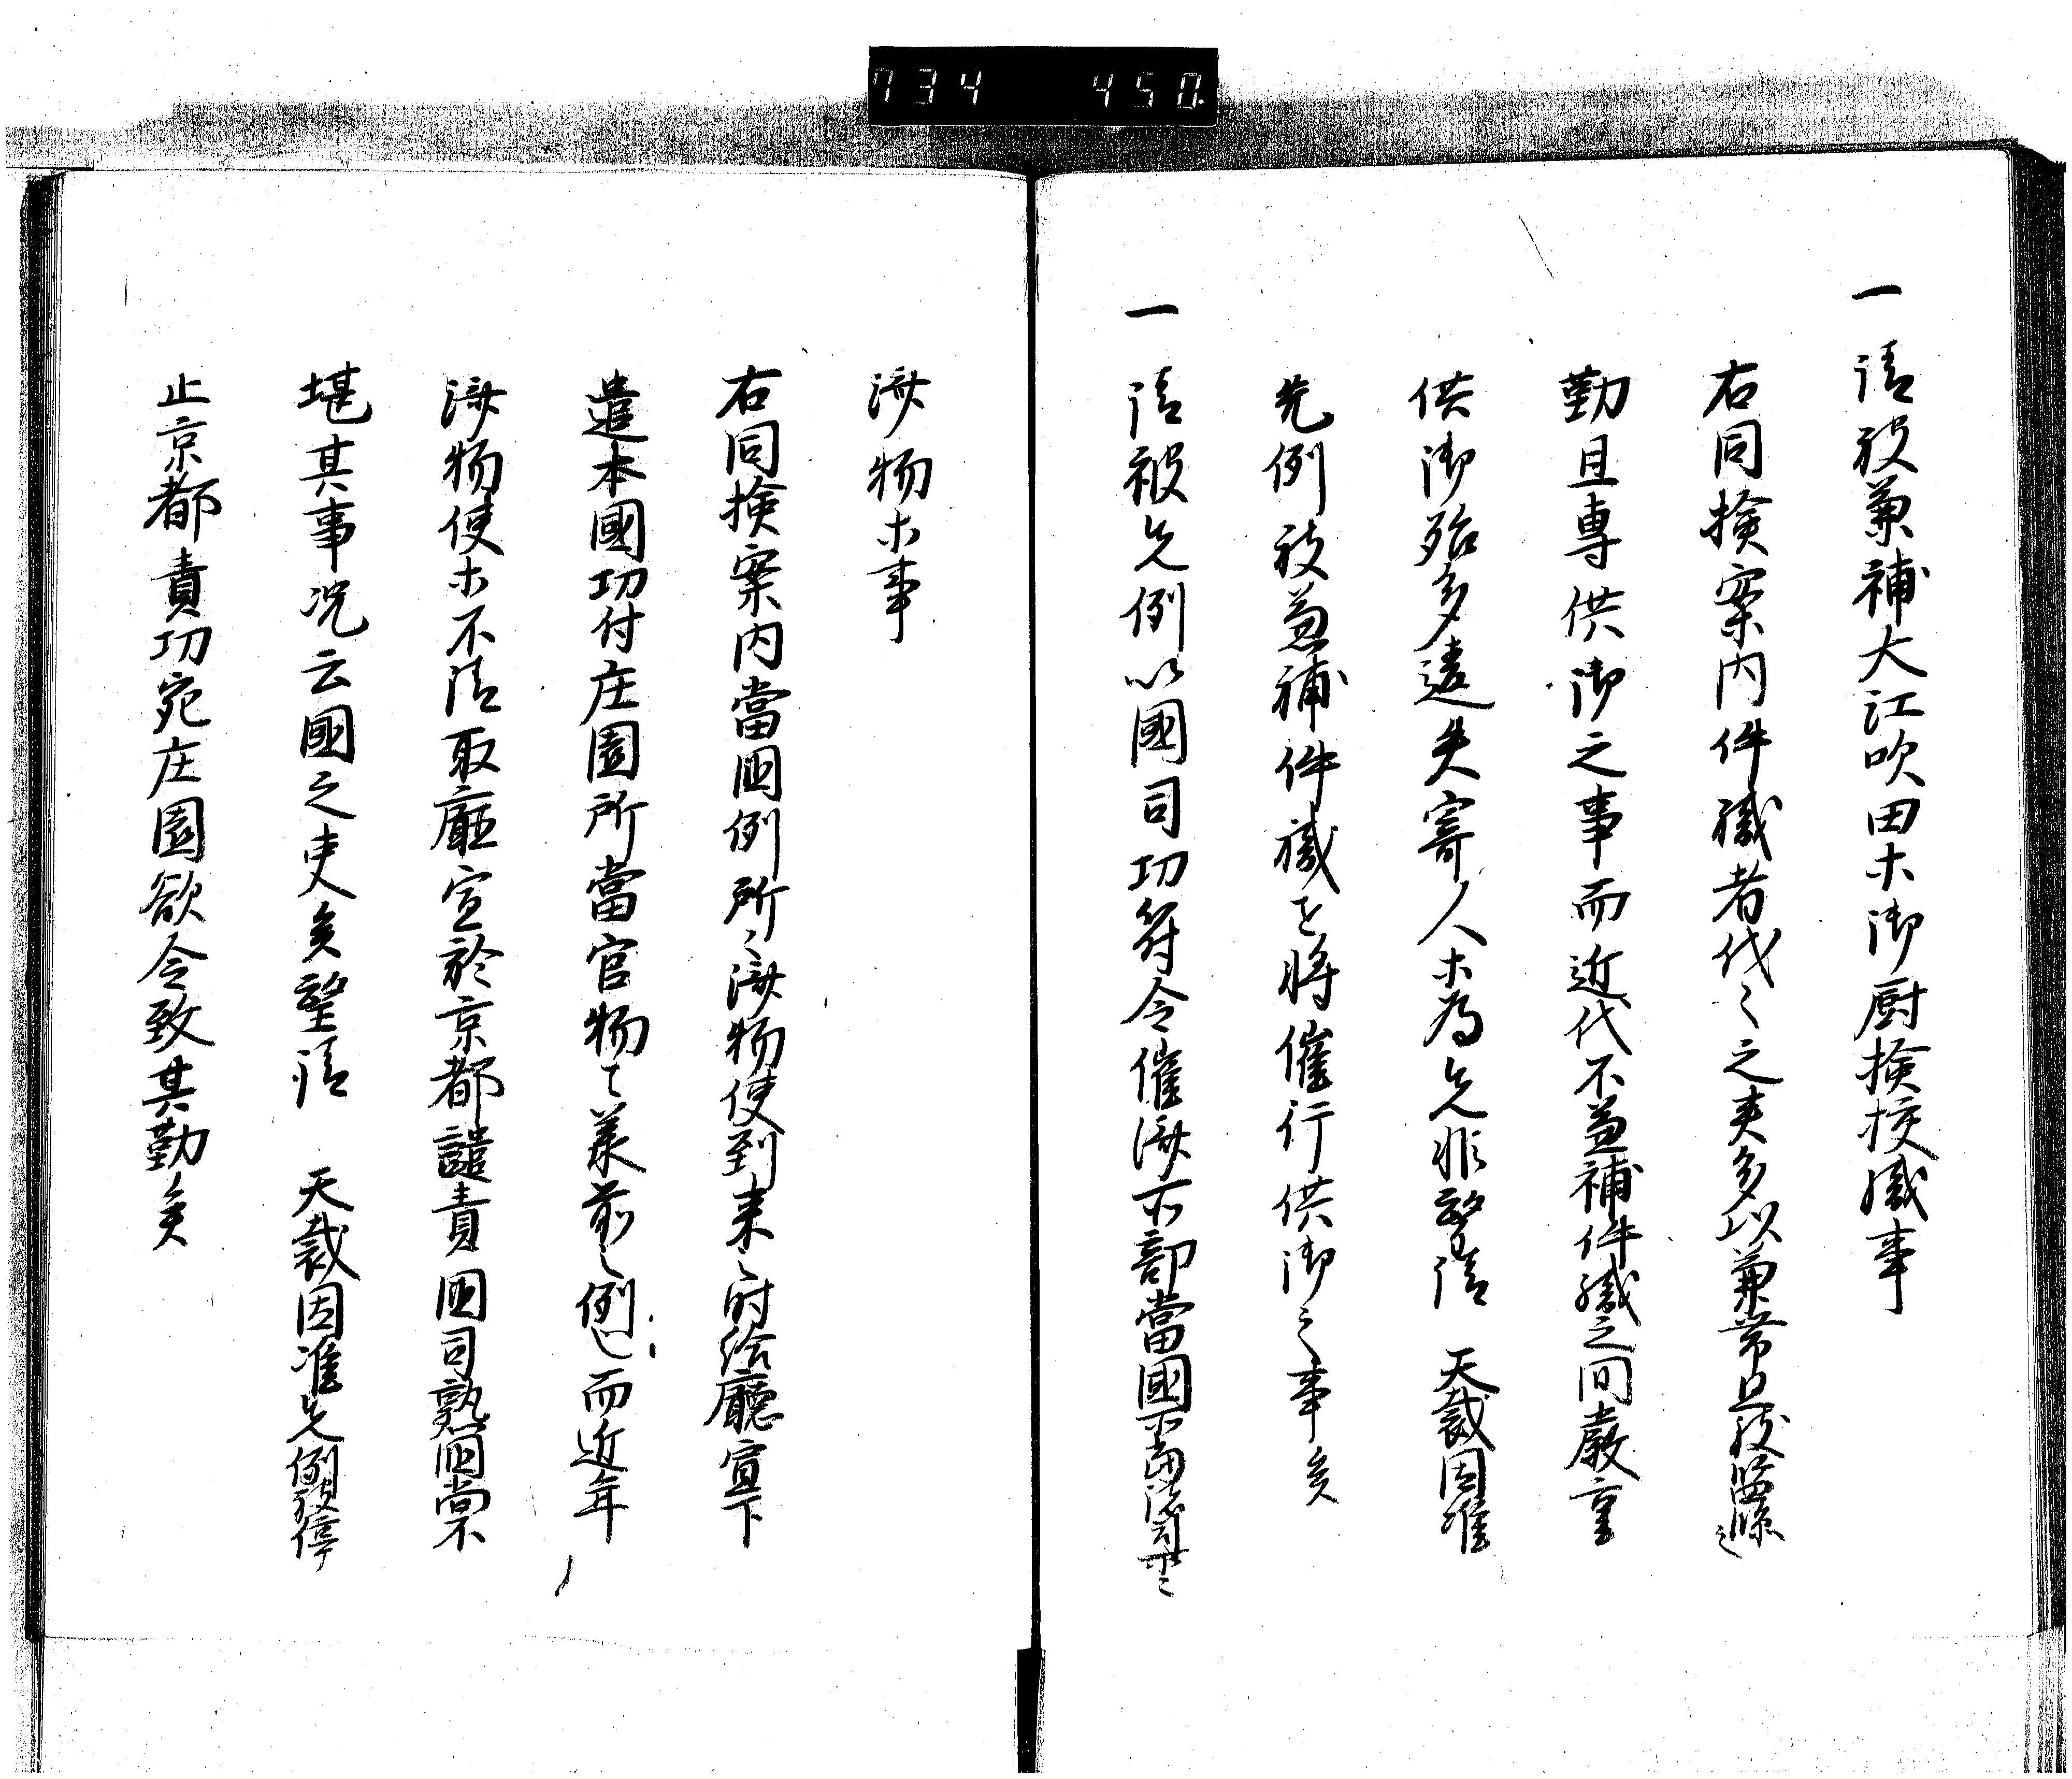 734 450
一請被兼補大江吹田木御厨検校職事
右同検案内件職者代々之吏多以兼帯且致
勤且専供御之事而近代不兼補件職之間厳重
供御殆多違失寄人木為先非望請 天裁因准
先例被兼補件職将催行供御之事矣
一請被先例以國司切符令催済所部當國
済物木事
右同検案内當国例所々済物使到来之時給廳宣下
遣本國切付庄園所當官物之義前之例也而近年
済物使木不請取廳宣於京都譴責国司熟国尚不
堪其事况云國之吏矣望請 天裁因准先例被停
止京都責切宛庄園欲令致其勤矣